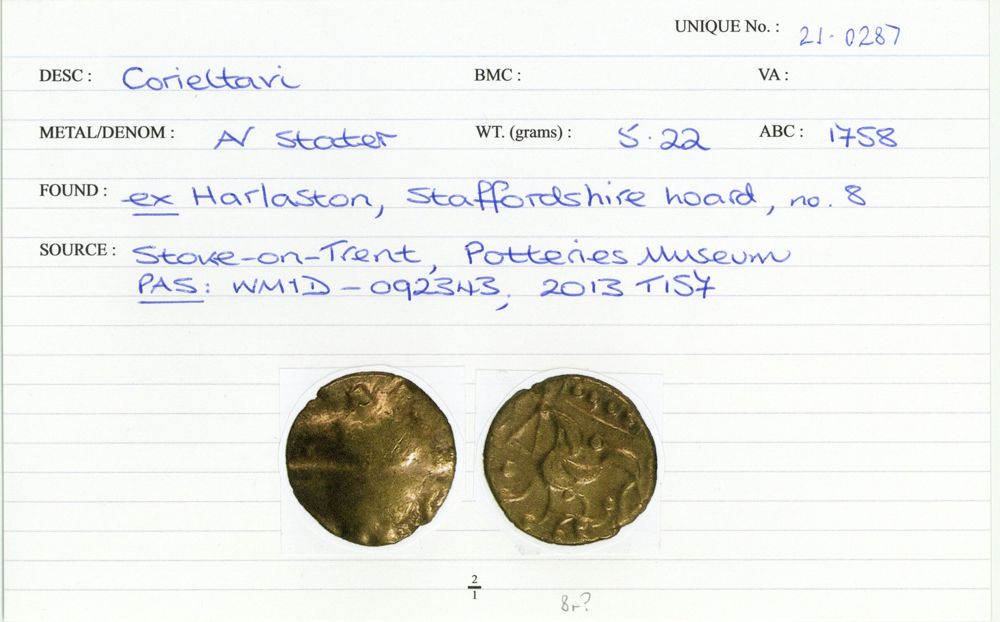 UNIQUE No. : 21·0287
DESC : Corieltavi BMC : VA :
METAL/DENOM : AV Stater WT. (grams) : 5·22 ABC : 1758
FOUND : ex Harlaston, Staffordshire hoard, no. 8
SOURCE : Stoke-on-Trent, Potteries Museum
PAS: WMID-092343, 2013 T157
2
1
8r?